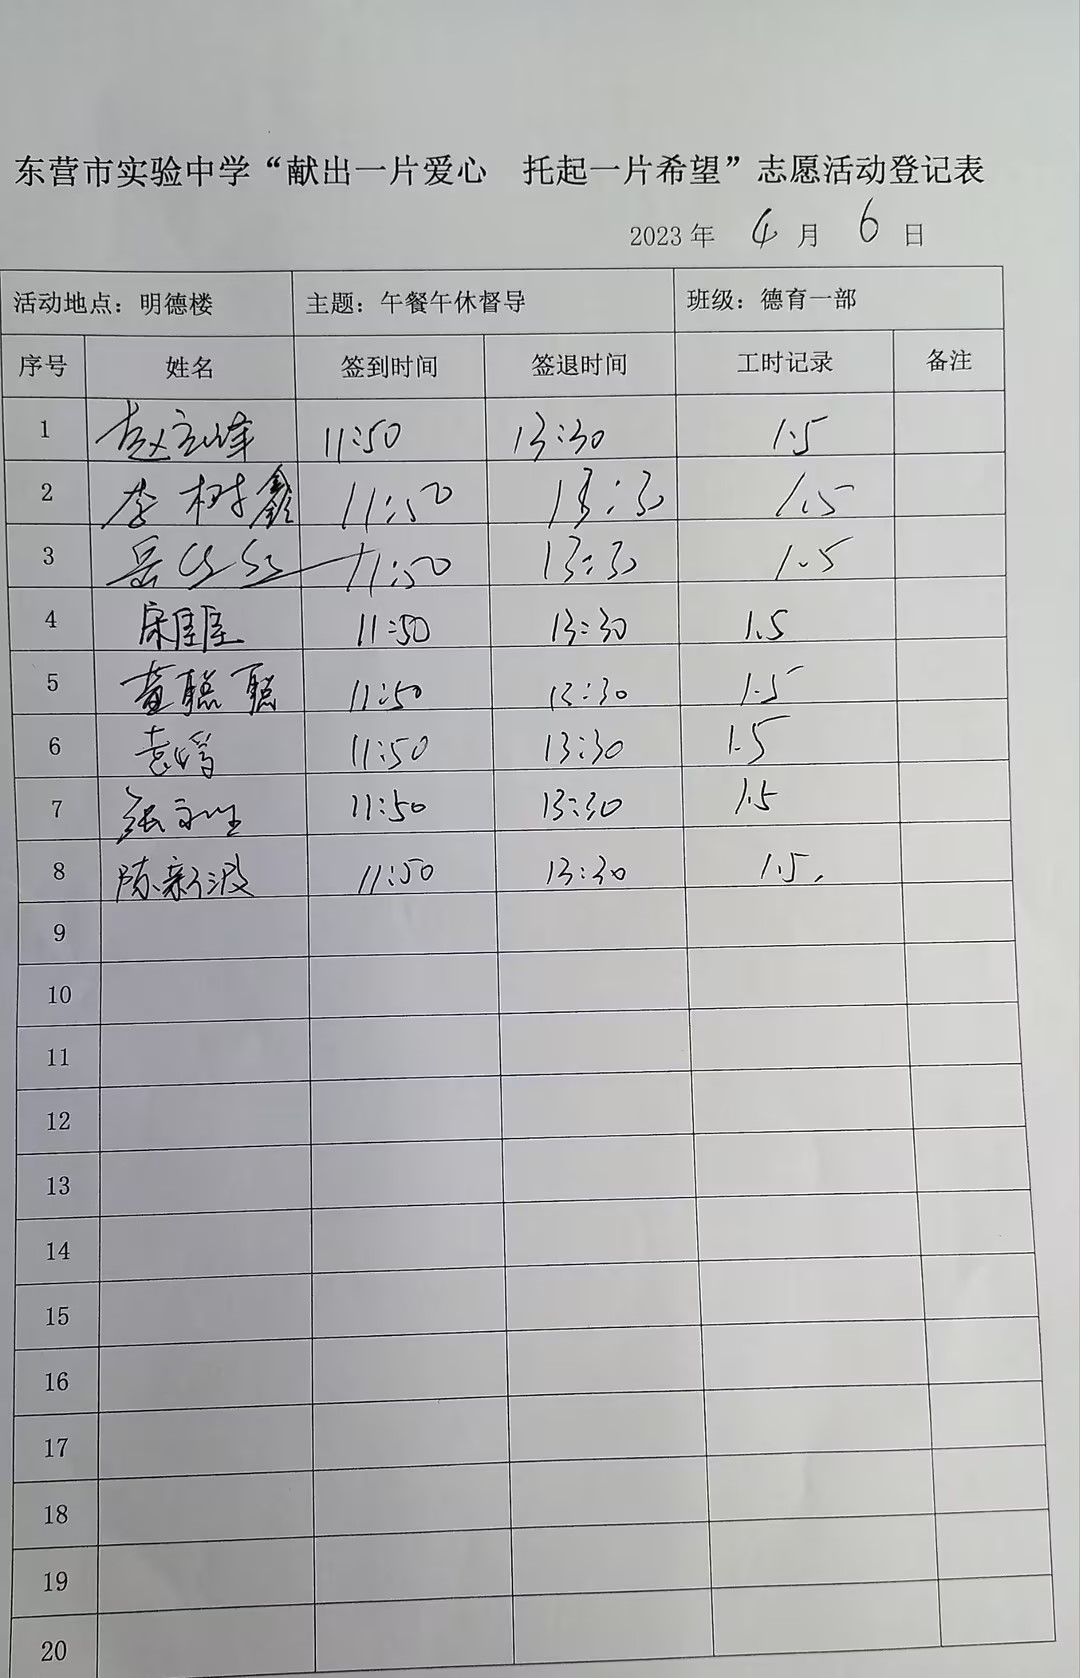 东营市实验中学“献出一片爱心 托起一片希望”志愿活动登记表
2023 年 4 月 6 日
活动地点：明德楼 主题：午餐午休督导 班级：德育一部
序号 姓名 签到时间 签退时间 工时记录 备注
1 赵立峰 11:50 13:30 1.5
2 李树鑫 11:50 13:30 1.5
3 岳丝丝 11:50 13:30 1.5
4 宋 11:50 13:30 1.5
5 董聪聪 11:50 13:30 1.5
6 袁 11:50 13:30 1.5
7 张 11:50 13:30 1.5
8 陈新波 11:50 13:30 1.5
9
10
11
12
13
14
15
16
17
18
19
20